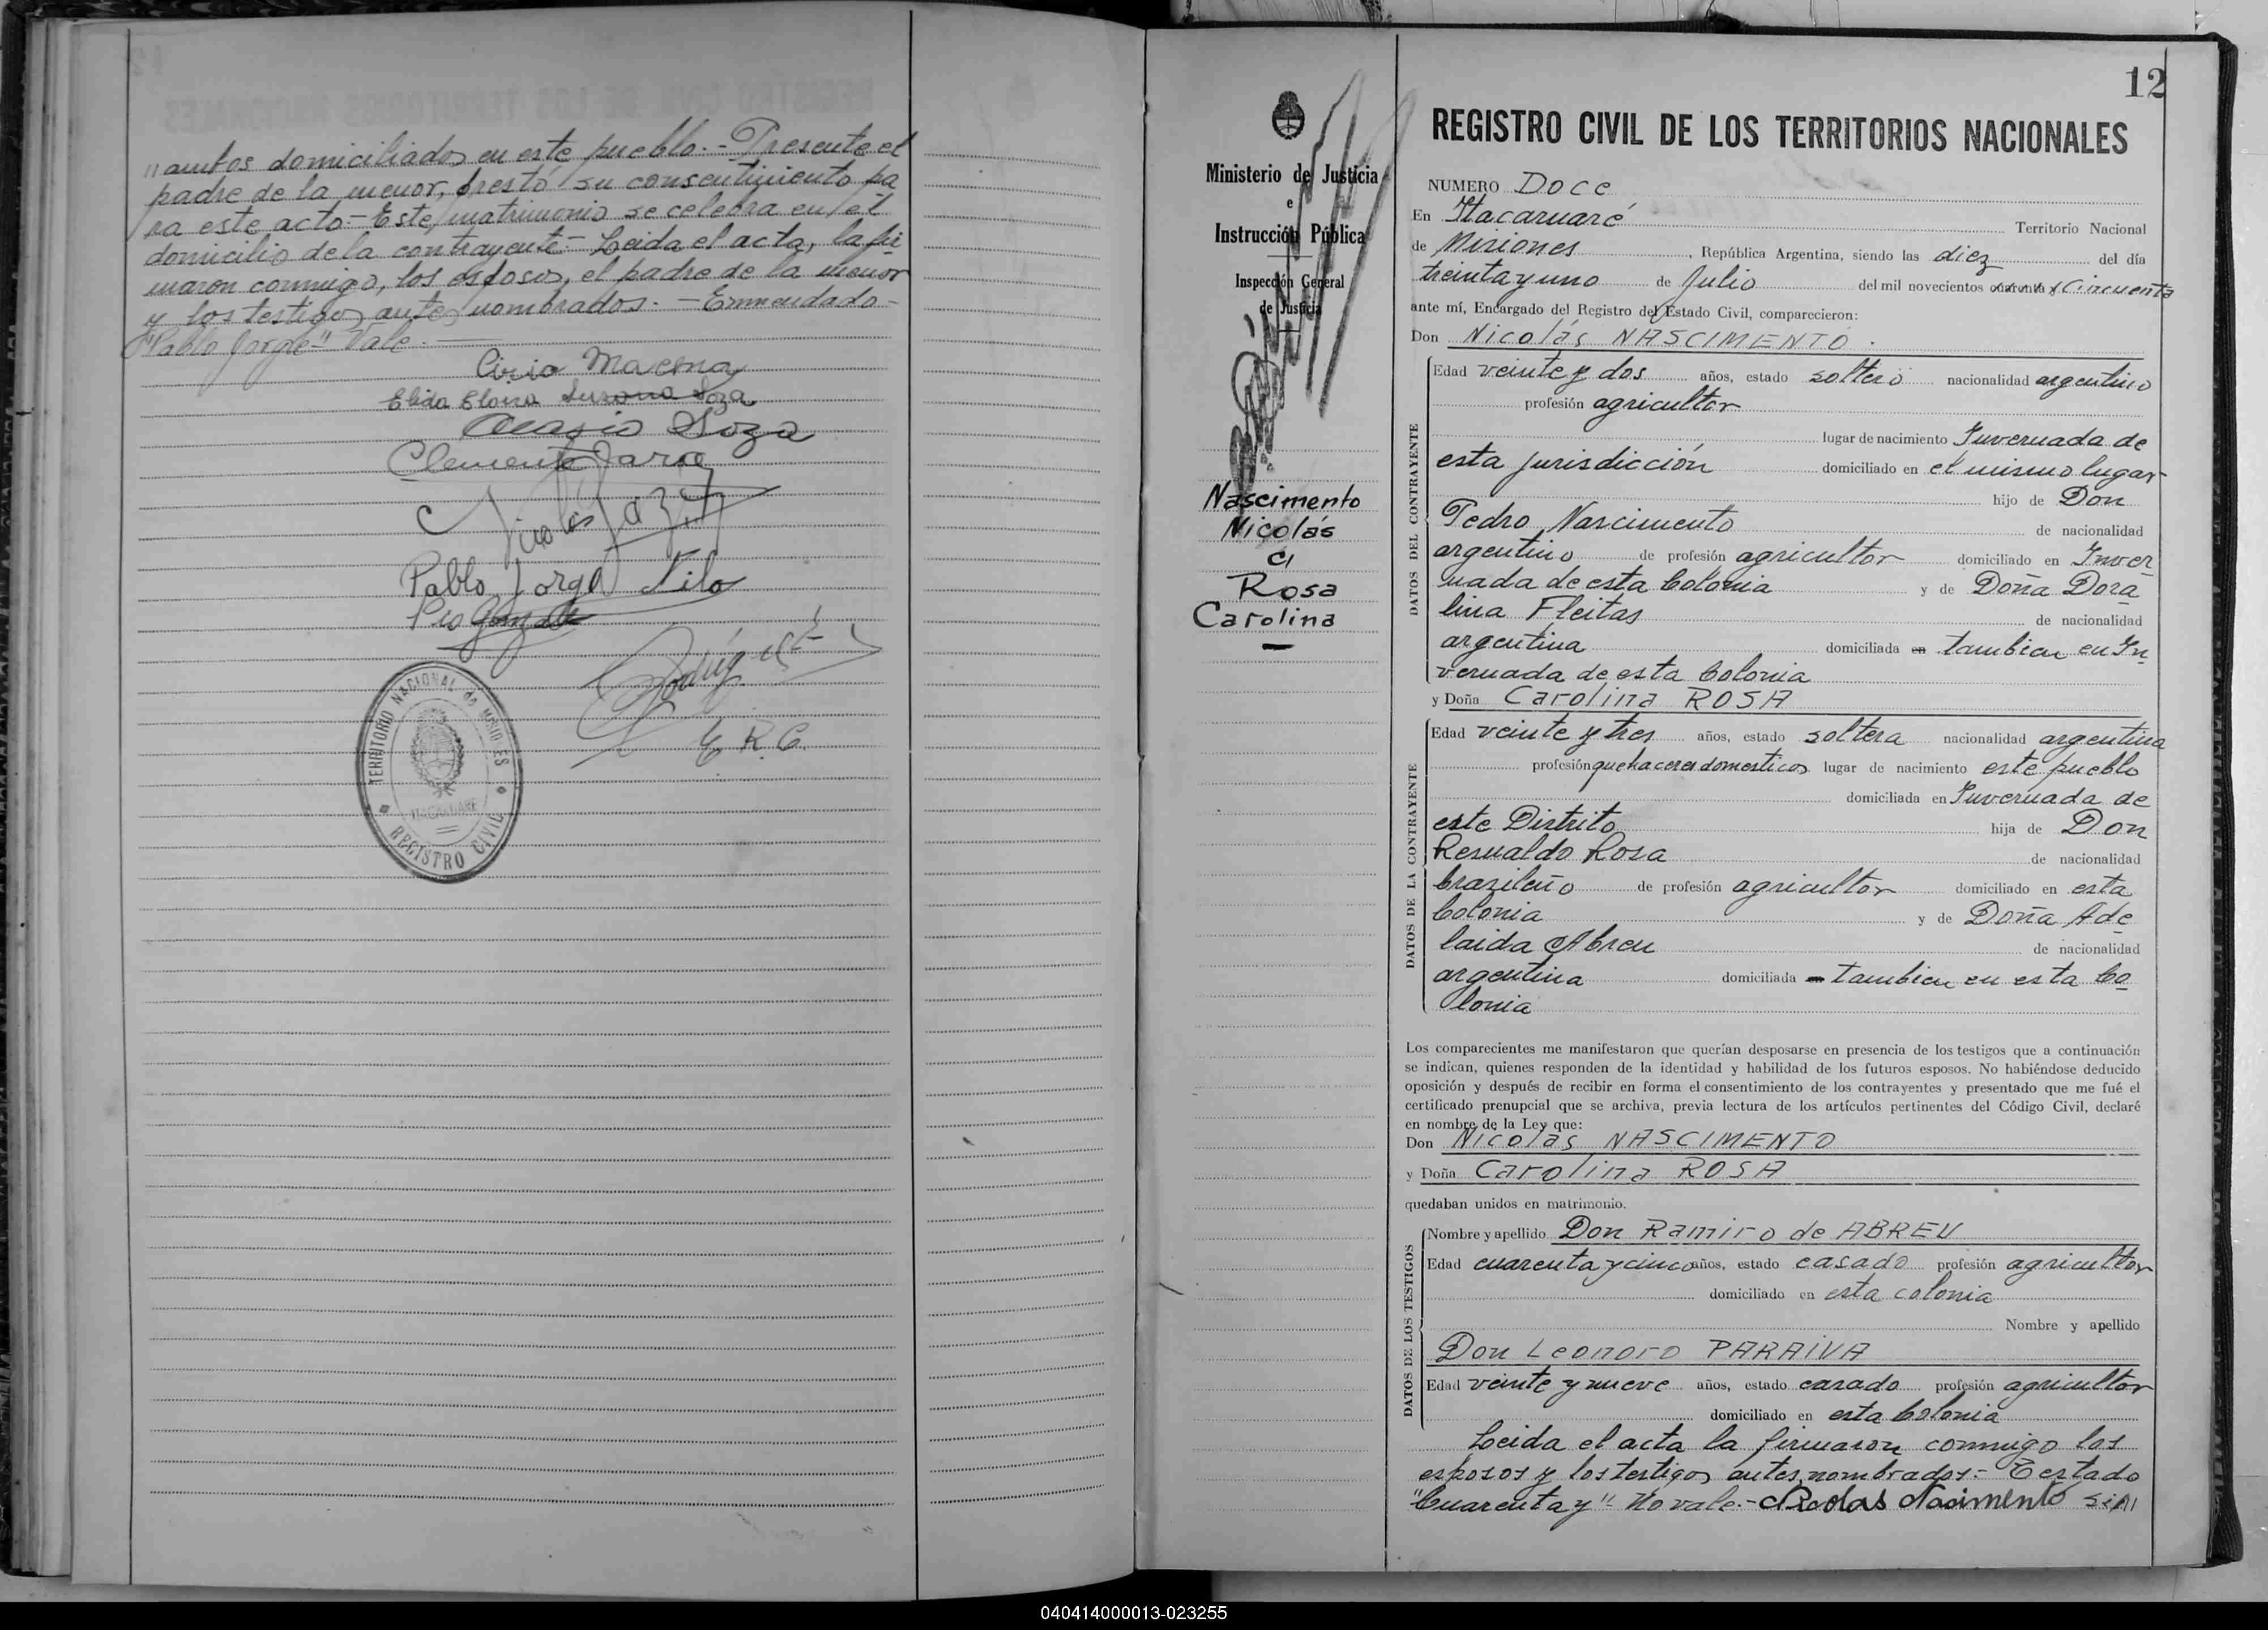 "ambos domiciliados en este pueblo.- Presente el
padre de la menor, prestó su consentimiento pa
ra este acto- Este matrimonio se celebra en el
domicilio de la contrayente- Leida el acta, la fir
maron conmigo, los esposos, el padre de la menor
y los testigos antes nombrados.- Enmendado-
"Pablo Jorge" Vale.-
Cirio
Elida Soza
Soza
Clemente Jara
Nicolas
Pablo Jorge
Pio
E. R. C.
TERRITORIO NACIONAL de MISIONES
ITACARUARE
REGISTRO CIVIL
Ministerio de Justicia
e
Instrucción Pública
Inspección General
de Justicia
Nascimento
Nicolás
c/
Rosa
Carolina
12
REGISTRO CIVIL DE LOS TERRITORIOS NACIONALES
NUMERO Doce
En Itacaruaré Territorio Nacional
de Misiones, República Argentina, siendo las diez del día
treinta y uno de Julio del mil novecientos cuarenta y Cincuenta
ante mí, Encargado del Registro del Estado Civil, comparecieron:
Don Nicolás NASCIMENTO.
DATOS DEL CONTRAYENTE
Edad veinte y dos años, estado soltero nacionalidad argentino
profesión agricultor
lugar de nacimiento Invernada de
esta jurisdicción domiciliado en el mismo lugar
hijo de Don
Pedro Nascimento de nacionalidad
argentino de profesión agricultor domiciliado en Inver
nada de esta Colonia y de Doña Dora
lina Fleitas de nacionalidad
argentina domiciliada en tambien en In
vernada de esta Colonia
y Doña Carolina ROSA
DATOS DE LA CONTRAYENTE
Edad veinte y tres años, estado soltera nacionalidad argentina
profesión quehaceres domesticos lugar de nacimiento este pueblo
domiciliada en Invernada de
este Distrito hija de Don
Resnaldo Rosa de nacionalidad
brazileño de profesión agricultor domiciliado en esta
Colonia y de Doña Ade
laida Abreu de nacionalidad
argentina domiciliada tambien en esta Co
lonia
Los comparecientes me manifestaron que querían desposarse en presencia de los testigos que a continuación
se indican, quienes responden de la identidad y habilidad de los futuros esposos. No habiéndose deducido
oposición y después de recibir en forma el consentimiento de los contrayentes y presentado que me fué el
certificado prenupcial que se archiva, previa lectura de los artículos pertinentes del Código Civil, declaré
en nombre de la Ley que:
Don Nicolás NASCIMENTO
y Doña Carolina ROSA
quedaban unidos en matrimonio.
DATOS DE LOS TESTIGOS
Nombre y apellido Don Ramiro de ABREU
Edad cuarenta y cinco años, estado casado profesión agricultor
domiciliado en esta colonia
Nombre y apellido
Don Leonoro PARAIVA
Edad veinte y nueve años, estado casado profesión agricultor
domiciliado en esta Colonia
Leida el acta la firmaron conmigo los
esposos y los testigos antes nombrados.- Testado
"Cuarenta y" No vale.- Nicolas Nacimento
040414000013-023255